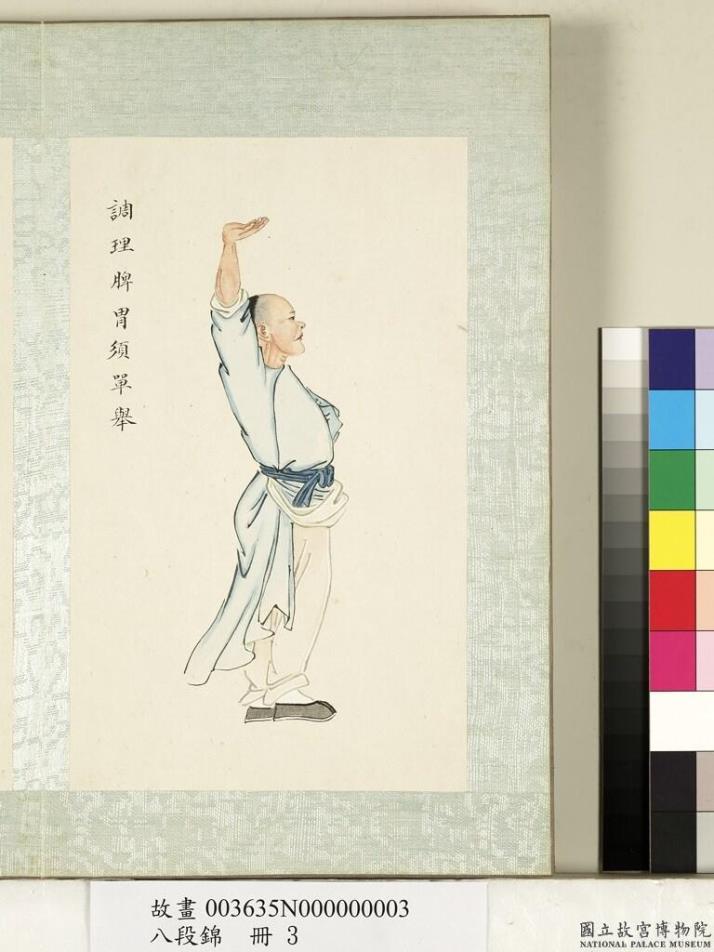 調理脾胃須單舉
故畫 003635N000000003
八段錦 冊 3
國立故宮博物院
NATIONAL PALACE MUSEUM